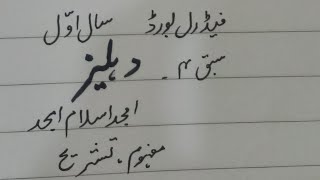 فیڈرل بورڈ سال اوّل
سبق ۴۔ دہلیز
امجد اسلام امجد
مفہوم، تشریح